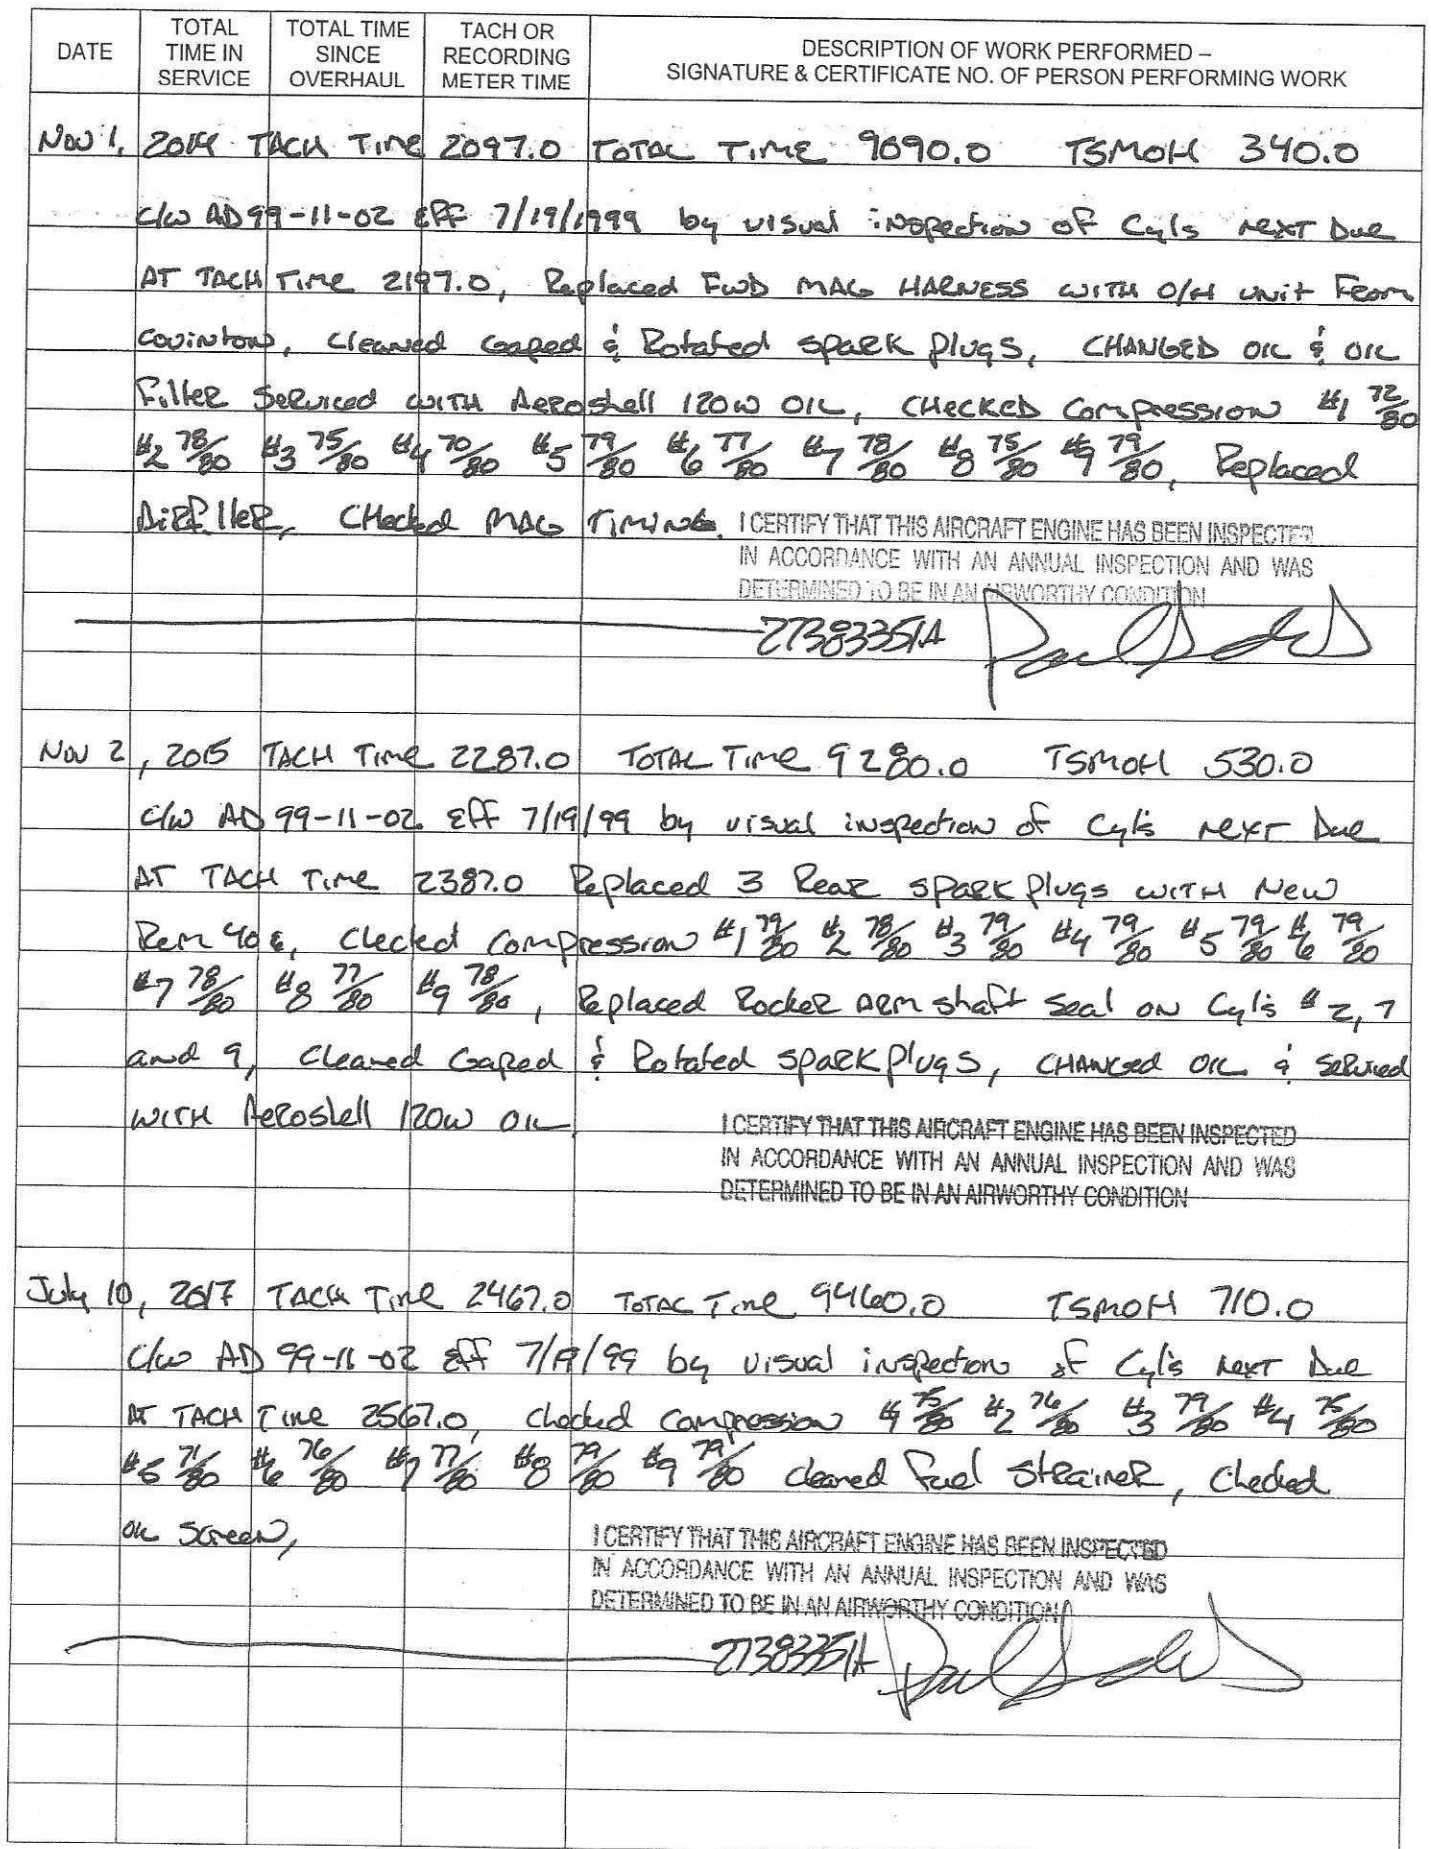 DATE
TOTAL TIME IN SERVICE
TOTAL TIME SINCE OVERHAUL
TACH OR RECORDING METER TIME
DESCRIPTION OF WORK PERFORMED –
SIGNATURE & CERTIFICATE NO. OF PERSON PERFORMING WORK
Nov 1, 2014 TACH Time 2097.0 TOTAL Time 9090.0 TSMOH 340.0
c/w AD 99-11-02 Eff 7/19/1999 by visual inspection of Cyls next Due
AT TACH Time 2197.0, Replaced FWD MAG HARNESS WITH O/H unit From
Covinton, Cleaned Gaped & Rotated spark plugs, CHANGED OIL & OIL
Filter Serviced WITH Aeroshell 120W OIL, CHECKED Compression #1 72/80
#2 78/80 #3 75/80 #4 70/80 #5 79/80 #6 77/80 #7 78/80 #8 75/80 #9 79/80, Replaced
Airfilter, CHecked MAG TIMING.
I CERTIFY THAT THIS AIRCRAFT ENGINE HAS BEEN INSPECTED
IN ACCORDANCE WITH AN ANNUAL INSPECTION AND WAS
DETERMINED TO BE IN AN AIRWORTHY CONDITION
2738335IA
Nov 2, 2015 TACH Time 2287.0 TOTAL Time 9280.0 TSMOH 530.0
c/w AD 99-11-02 Eff 7/19/99 by visual inspection of Cyl's next Due
AT TACH Time 2387.0 Replaced 3 Rear spark plugs WITH New
Rem 40E, Checked Compression #1 79/80 #2 78/80 #3 79/80 #4 79/80 #5 79/80 #6 79/80
#7 78/80 #8 77/80 #9 78/80, Replaced Rocker Arm shaft seal on Cyl's #2, 7
and 9, Cleaned Gaped & Rotated spark plugs, CHANGED OIL & Serviced
WITH Aeroshell 120W OIL
I CERTIFY THAT THIS AIRCRAFT ENGINE HAS BEEN INSPECTED
IN ACCORDANCE WITH AN ANNUAL INSPECTION AND WAS
DETERMINED TO BE IN AN AIRWORTHY CONDITION
July 10, 2017 TACH Time 2467.0 TOTAL Time 9460.0 TSMOH 710.0
c/w AD 99-11-02 Eff 7/19/99 by visual inspection of Cyl's next Due
AT TACH Time 2567.0, checked compression #1 75/80 #2 76/80 #3 79/80 #4 75/80
#5 71/80 #6 76/80 #7 77/80 #8 79/80 #9 79/80 cleaned fuel Strainer, Checked
oil screen,
I CERTIFY THAT THIS AIRCRAFT ENGINE HAS BEEN INSPECTED
IN ACCORDANCE WITH AN ANNUAL INSPECTION AND WAS
DETERMINED TO BE IN AN AIRWORTHY CONDITION
2738335IA